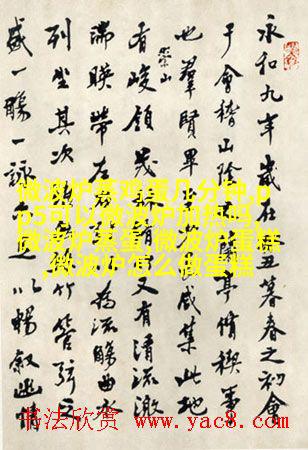 永和九年歲在丑暮春之初會
于會稽山陰亭脩禊事
也羣賢畢咸集此地
有崇山峻領茂又有清流激
湍暎帶左為流觴曲水
列坐其次竹管弦之
盛一觴一詠以暢敘幽情
微波炉蒸鸡蛋几分钟,p
p5可以微波炉加热吗,
微波炉蒸蛋,微波炉蛋糕
,微波炉怎么做蛋糕
书法欣赏 www.yac8.com